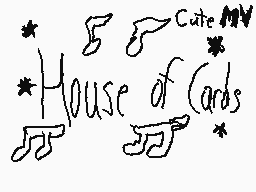 Cute MV
House of Cards